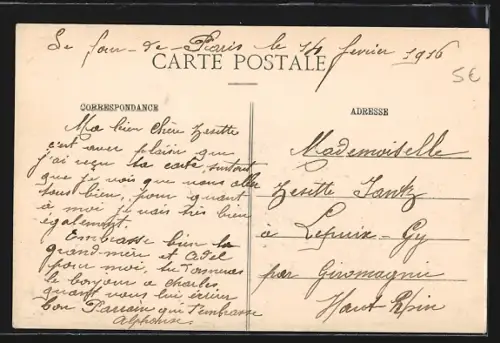 Le four-de-Paris le 14 fevrier 1916
CARTE POSTALE
5€
CORRESPONDANCE
Ma bien Chère Zezette
c'est avec plaisir que
j'ai reçu ta carte, surtout
que je vois que vous allez
tous bien, pour quant
à moi je vais très bien
également.
Embrasse bien ta
grand-mère et Adel
pour moi, tu donneras
le bonjour a Charles,
quant vous lui écrirez
ton Parrain qui t'embrasse
Alphonse
ADRESSE
Mademoiselle
Zezette Jantz
à Lepuix-Gy
par Giromagnie
Haut-Rhin